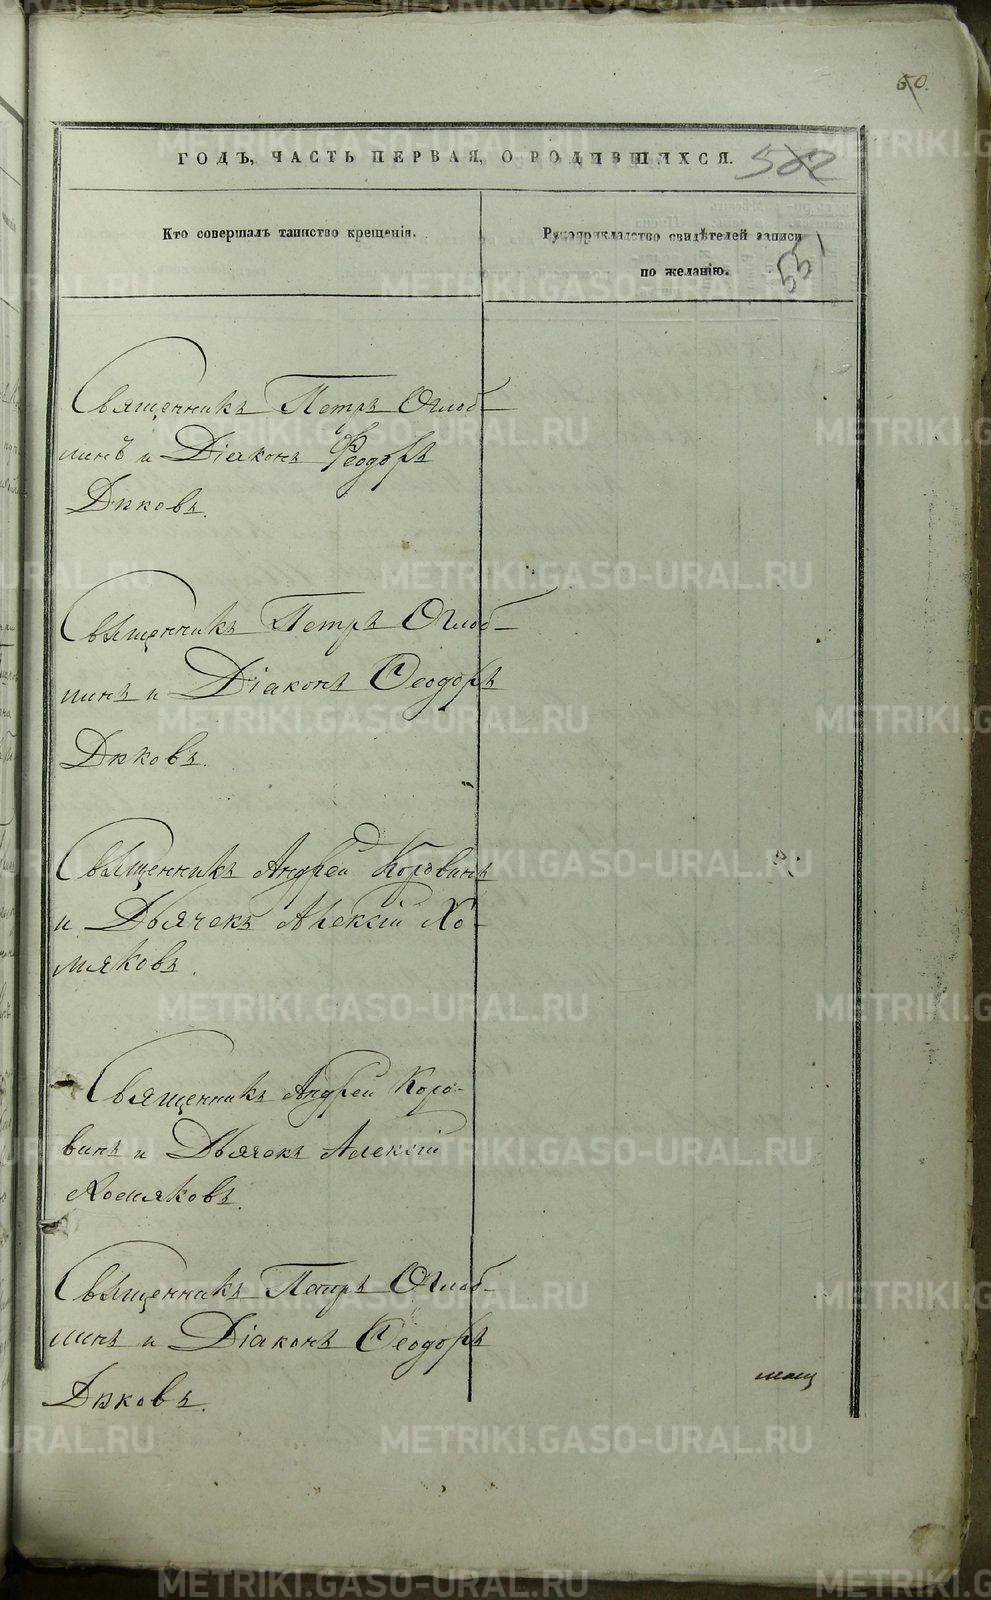 50.
ГОДЪ, ЧАСТЬ ПЕРВАЯ, О РОДИВШИХСЯ.
502
Кто совершалъ таинство крещенія.
Рукоприкладство свидѣтелей записи
по желанію.
551
Священникъ Петръ Оглоб-
линъ и Діаконъ Ѳеодоръ
Дѣковъ.
Священникъ Петръ Оглоб-
линъ и Діаконъ Ѳеодоръ
Дѣковъ.
Священникъ Андрей Коровинъ
и Дьячекъ Алексій Хо-
мяковъ.
Священникъ Андрей Коро-
винъ и Дьячекъ Алексій
Хомяковъ.
Священникъ Петръ Оглоб-
линъ и Діаконъ Ѳеодоръ
Дѣковъ.
METRIKI.GASO-URAL.RU